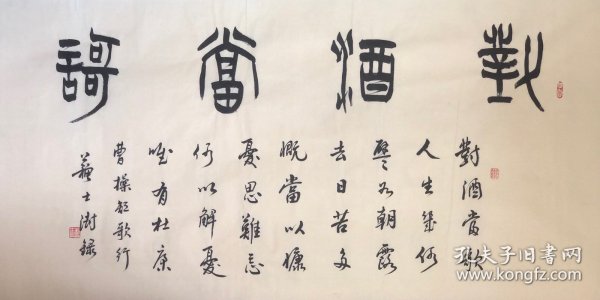 對酒當歌
對酒當歌
人生幾何
譬如朝露
去日苦多
慨當以慷
憂思難忘
何以解憂
唯有杜康
曹操短歌行
蘇士澍錄
孔夫子旧书网
www.kongfz.com